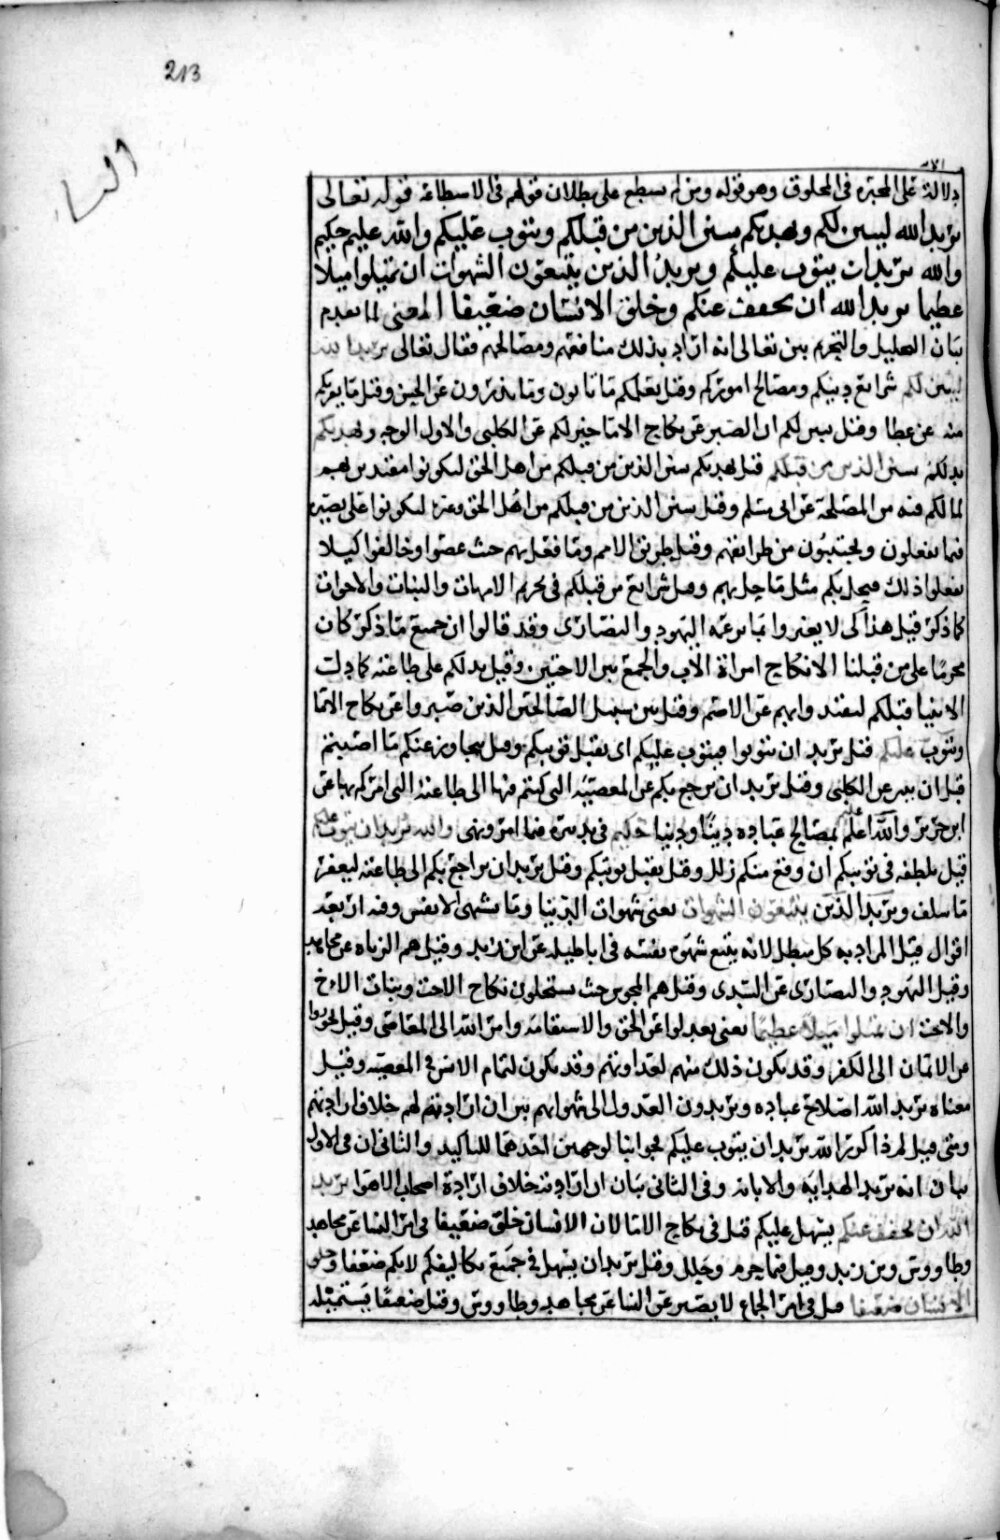 213
النسا
دلالة على المجبرة في المخلوق وهو قوله ومن لم يستطع على بطلان قولهم في الاستطاعة قوله تعالى
يريد الله ليبين لكم ويهديكم سنن الذين من قبلكم ويتوب عليكم والله عليم حكيم
والله يريد ان يتوب عليكم ويريد الذين يتبعون الشهوات ان تميلوا ميلا
عظيما يريد الله ان يخفف عنكم وخلق الانسان ضعيفا المعنى لما تقدم
بيان التحليل والتحريم بين تعالى انه اراد بذلك منافعهم ومصالحهم فقال تعالى يريد الله
ليبين لكم شرائع دينكم ومصالح اموركم وقيل يعلمكم ما تاتون وما تذرون عن الحسن وقيل ما يقربكم
منه عن عطا وقيل يبين لكم ان الصبر عن نكاح الاما خير لكم عن الكلبي والاول الوجه ويهديكم
يدلكم سنن الذين من قبلكم قيل يهديكم سنن الذين من قبلكم من اهل الحق لتكونوا مقتدين بهم
لما لكم فيه من المصلحة عن ابي مسلم وقيل سنن الذين من قبلكم من اهل الحق وغيره لتكونوا على بصيرة
فيما تفعلون وتجتنبون من طرائقهم وقيل طريق الامم وما فعل بهم حيث عصوا وخالفوا كيلا
تفعلوا ذلك فيحل بكم مثل ما حل بهم وقيل شرائع من قبلكم في تحريم الامهات والبنات والاخوات
كما ذكر قبل هذا كي لا يغتروا بما يزعمه اليهود والنصارى وقد قالوا ان جميع ما ذكر كان
محرما على من قبلنا الا نكاح امراة الاب والجمع بين الاختين وقيل يدلكم على طاعته كما دلت
الانبيا قبلكم لتقتدوا بهم عن الاصم وقيل يبين سبيل الصالحين الذين صبروا عن نكاح الاما
ويتوب عليكم قيل يريد ان تتوبوا فيتوب عليكم اي يقبل توبتكم وقيل يتجاوز عنكم ما اصبتم
قبل ان يبين عن الكلبي وقيل يريد ان يرجع بكم عن المعصية التي كنتم فيها الى طاعته التي امركم بها عن
ابن جرير والله عليم اعلم بمصالح عباده دينا ودنيا حكيم في تدبيره فيما امر ونهى والله يريد ان يتوب عليكم
قيل يلطفه في توبتكم ان وقع منكم زلل وقيل يقبل توبتكم وقيل يريد ان يراجع بكم الى طاعته ليغفر
ما سلف ويريد الذين يتبعون الشهوات يعني شهوات الدنيا وما تشتهي الانفس وفيه اربعة
اقوال قيل المراد به كل مبطل لانه يتبع شهوة نفسه في اباطيله عن ابن زيد وقيل هم الزناه عن مجاهد
وقيل اليهود والنصارى عن السدي وقيل هم المجوس حيث يستحلون نكاح الاخت وبنات الاخ
والاخت ان تميلوا ميلا عظيما يعني تعدلوا عن الحق والاستقامة وامر الله الى المعاصي وقيل تحوروا
من الايمان الى الكفر وقد يكون ذلك منهم لعداوتهم وقد يكون لتمام الانس في المعصية وقيل
معناه يريد الله اصلاح عباده ويريدون العدول الى شهواتهم بين ان ارادتهم لهم خلاف ارادتهم
ومتى قيل لم ذا كرر الله يريد ان يتوب عليكم فجوابنا لوجهين احدهما للتاكيد والثاني ان في الاول
بيان انه يريد الهداية والابانة وفي الثاني بيان ان ارادته خلاف ارادة اصحاب الاهوا يريد
الله ان يخفف عنكم يسهل عليكم قيل في نكاح الاما لان الانسان خلق ضعيفا في امر النسا عن مجاهد
وطاووس وبن زيد وقيل فيما حرم وحلل وقيل يريد ان يسهل في جميع تكاليفكم لانكم ضعفا وخلق
الانسان ضعيفا قيل في امر الجماع لا يصبر عن النسا عن مجاهد وطاووس وقيل ضعيفا يستميله